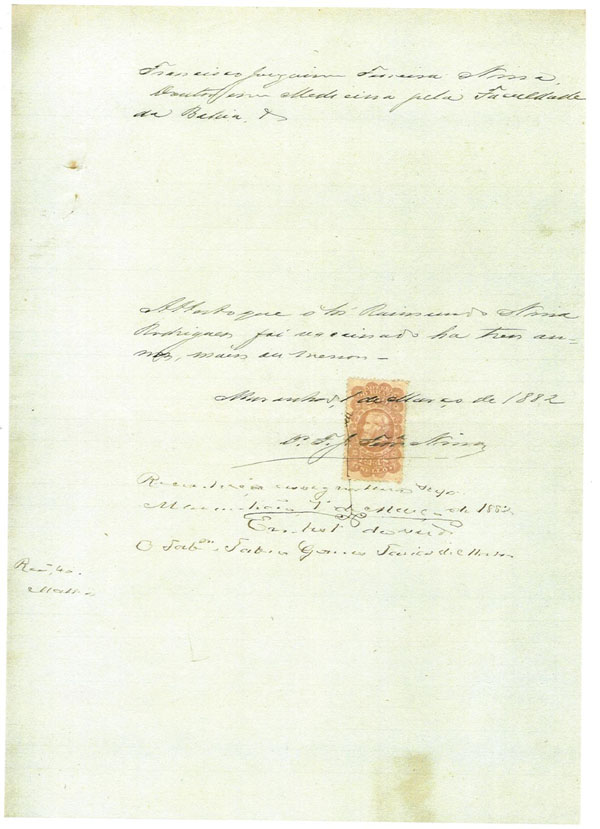 Francisco Joaquim Ferreira Nina.
Doutor em Medicina pela Faculdade
da Bahia. &
Attesto que o Sñr Raimundo Nina
Rodrigues foi vaccinado ha tres an-
nos, mais ou menos –
Maranhão, 1 de Março de 1882
Dr. F. J. Ferra Nina
Reconheço a assignatura supra.
Maranhão 1º de Março de 1882.
Em testº de verde
O Tabam
Gomes